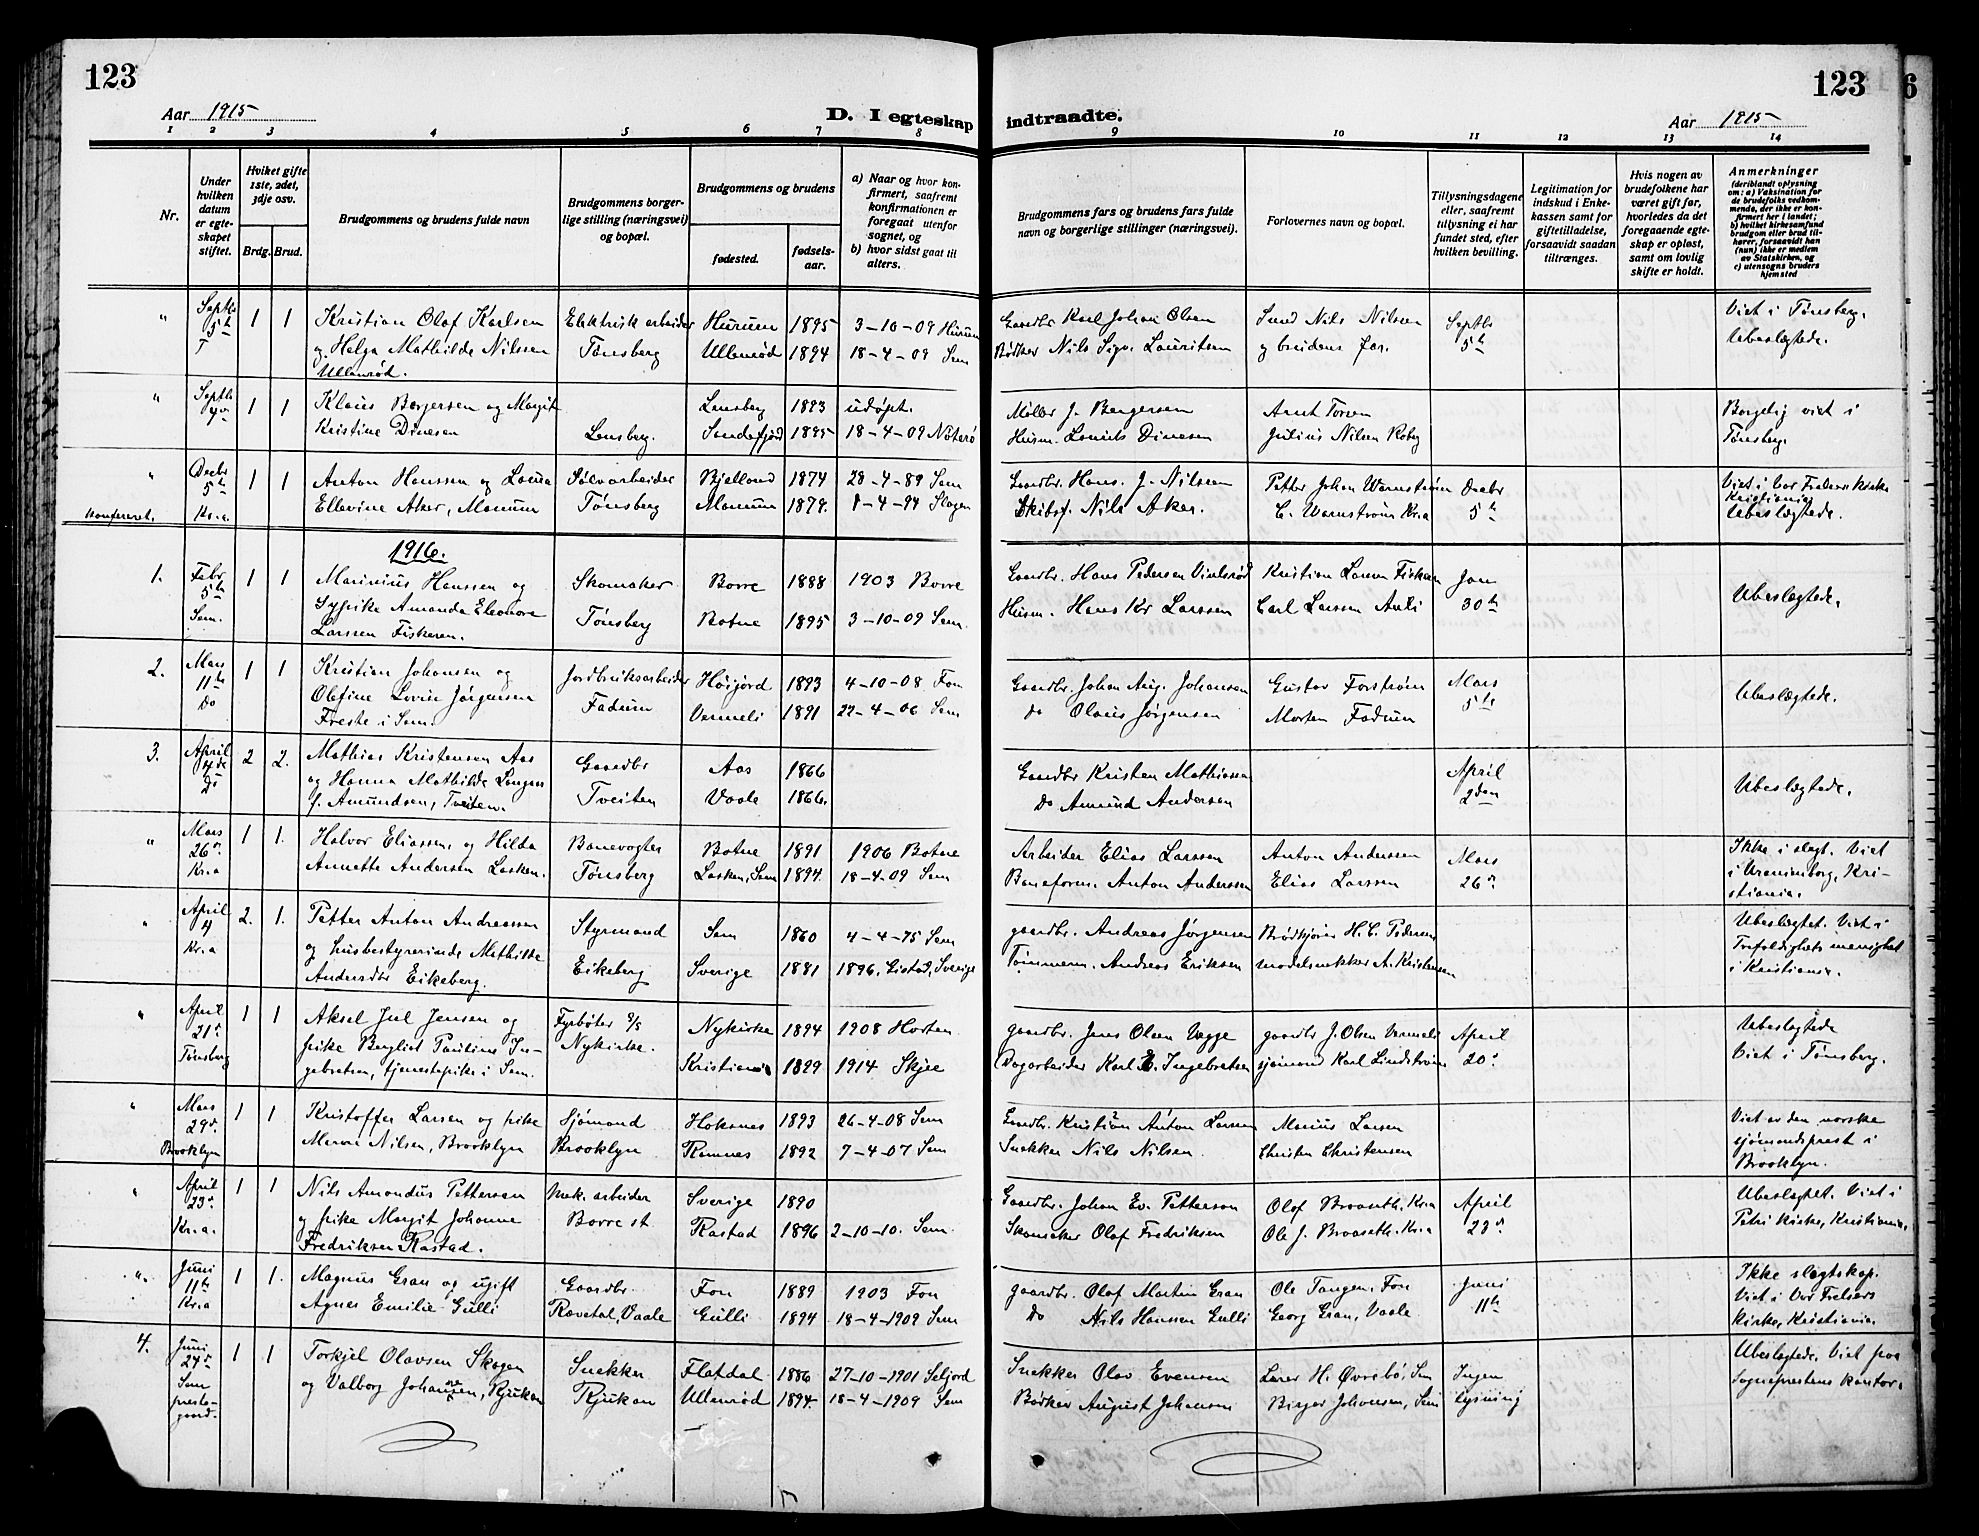 123
123
Aar 1915
D. I egteskap
indtraadte.
Aar 1915
1 2 3 4 5 6 7 8 9 10 11 12 13 14
Nr.
Under hvilken datum er egteskapet stiftet.
Hvilket gifte 1ste, 2det, 3dje osv.
Brdg. Brud.
Brudgommens og brudens fulde navn
Brudgommens borgerlige stilling (næringsvei) og bopæl.
Brudgommens og brudens
fødested.
fødselsaar.
a) Naar og hvor konfirmert, saafremt konfirmationen er foregaaet utenfor sognet, og
b) hvor sidst gaat til alters.
Brudgommens fars og brudens fars fulde navn og borgerlige stillinger (næringsvei).
Forlovernes navn og bopæl.
Tillysningsdagene eller, saafremt tillysning ei har fundet sted, efter hvilken bevilling.
Legitimation for indskud i Enkekassen samt for giftetilladelse, forsaavidt saadan tiltrænges.
Hvis nogen av brudefolkene har været gift før, hvorledes da det foregaaende egteskap er opløst, samt om lovlig skifte er holdt.
Anmerkninger (deriblandt oplysning om: a) Vaksination for de brudefolks vedkommende, der ikke er konfirmert her i landet; b) hvilket kirkesamfund brudgom eller brud tilhører, forsaavidt han (hun) ikke er medlem av Statskirken, og c) utensogns bruders hjemsted
" Septbr 5te T 1 1 Kristian Olaf Karlsen Elektrisk arbeider Hurum 1895 3-10-09 Hurum Gaardbr. Karl Johan Olsen Nils Nilsen Septbr 5te Viet i Tønsberg.
og Helga Mathilde Nilssen Tønsberg Ullerød 1894 18-4-09 Sem Bødker Nils Sigv. Lauritsen og brudens far. Ubeslægtede.
Ullerød.
" Septbr 1 1 Klaus Bergersen og Margit 1893 udøpt. Møller J. Bergersen Arnt Borgelig viet i
Kristine Dinesen Sandefjord 1895 18-4-09 Nøterø Husm. Dinesen Julius Nilsen Tønsberg.
" Decbr 5te Kr.a 1 1 Anton Hanssen og Lovisa Sølvarbeider Bjelland 1874 28-4-89 Sem Gaardbr. Hans J. Nilsen Petter Johan Warnstrøm Decbr 5te Viet i Vor Frelsers kirke
konfereret. Ellevine Aker, Manum Tønsberg Manum 1879. 8-4-94 Slagen Skibsf. Nils Aker. C. Warnstrøm Kr.a Kristiania
Ubeslægtede.
1916.
1. Febr 5te Sem. 1 1 Marinius Hanssen og Skomaker Borre 1888 1903 Borre Gaardbr. Hans Pedersen Kristian Larsen Fiskeren Jan 30te Ubeslægtede.
Sypike Amanda Eleonora Tønsberg Botne 1895 3-10-09 Sem. Husm. Hans Kr Larssen Carl Larssen Auli
Larssen Fiskeren.
2. Mars 11te Do 1 1 Kristian Johansen og Jordbruksarbeider Høijord 1893 4-10-08 Fon Gaardbr. Johan Aug. Johansen Gustav Forstrøm Mars 5te Ubeslægtede.
Olefine Lovise Jørgensen Fadum Vermeli 1891 22-4-06 Sem Do Olaus Jørgensen Morten Fadum
Freste i Sem.
3. April Do 2 2. Mathias Kristensen Aas Gaardbr Aas 1866 Gaardbr Kristen Mathiassen April 2den Ubeslægtede.
og Hanna Mathilde Tveiten Vaale 1866. Do Amund Andersen
f. Amundsen, Tveiten.
" Mars 26de Kr.a 1 1. Halvor Eliassen og Hilda Banevogter Botne 1891 1906 Botne Arbeider Elias Larssen Anton Anderssen Mars 26de Ikke i slegt. Viet
Annette Andersen Lasken. Tønsberg Lasken, Sem 1894. 18-4-09 Sem Baneform. Anton Anderssen Elias Larssen i Uranienborg, Kristiania.
" April 4 Kr.a 2. 1. Petter Anton Andreassen Styrmand Sem 1860 4-4-75 Sem gaardbr. Andreas Jørgensen H. C. Pedersen Ubeslægtet. Viet i
og husbestyrerinde Mathilde Eikeberg Sverige 1881 1896, Sverige Tømmerm. Andreas Eriksen modelsnekker A. Kristensen Trefoldighets menighet
Andersdtr Eikeberg. i Kristiania.
" April 21de Tønsberg 1 1 Aksel Jul Jensen og Fyrbøter Nykirke 1894 1908 Horten gaardbr. Jens Olsen Vegge gaardbr J. Olsen April 20de Ubeslegtede
pike Bergliot Pauline Ingebretsen, tjenestepike i Sem. Nykirke. Kristiania 1899 1914 Skjee Dagarbeider Karl E. Ingebretsen sjømand Karl Lindstrøm Viet i Tønsberg.
" Mars 29de Brooklyn 1 1 Kristoffer Larsen og pike Sjømand Hoksnes 1893 26-4-08 Sem Gaardbr. Kristian Anton Larsen Marius Larsen Viet av den norske
Nilsen, Brooklyn Brooklyn Ramnes 1892 7-4-07 Sem Snekker Nils Nilsen. Christen Christensen sjømandsprest i
Brooklyn.
" April 23de Kr.a. 1 1 Nils Amandus Petterson Mek. arbeider Sverige 1890 Gaardbr. Johan Ev. Petterson Olof Kr.a April 23de Ubeslegtet. Viet i
og pike Margit Johanne Borre st Rastad 1896 2-10-10. Sem. Skomaker Olof Fredriksen Ole J. Kr.a Petri kirke, Kristiania.
Fredriksen Rastad.
" Juni 11te Kr.a 1 1. Magnus Gran og ugift Gaardbr. Fon 1889 1903 Fon gaardbr. Olof Martin Gran Ole Tangen, Fon Juni 11te Ikke slegtskap.
Agnes Emilie Gulli Rævetal, Vaale Gulli 1894 18-4-1909 Sem Do Nils Hanssen Gulli Georg Gran, Vaale Viet i Vor Frelsers
kirke, Kristiania.
4. Juni 24de Sem prestegaard. 1 1 Torkjel Olavsen Skogen Snekker Flatdal 1886 27-10-1901 Seljord Snekker Olav Evensen Lærer H. Øvrebø, Sem Ingen lysning Ubeslegtede. Viet paa
og Valborg Johansen, Rjukan Rjukan Ullerød 1894 18-4-1909 Sem Bødker August Johansen Birger Johansen, Sem Sogneprestens kontor.